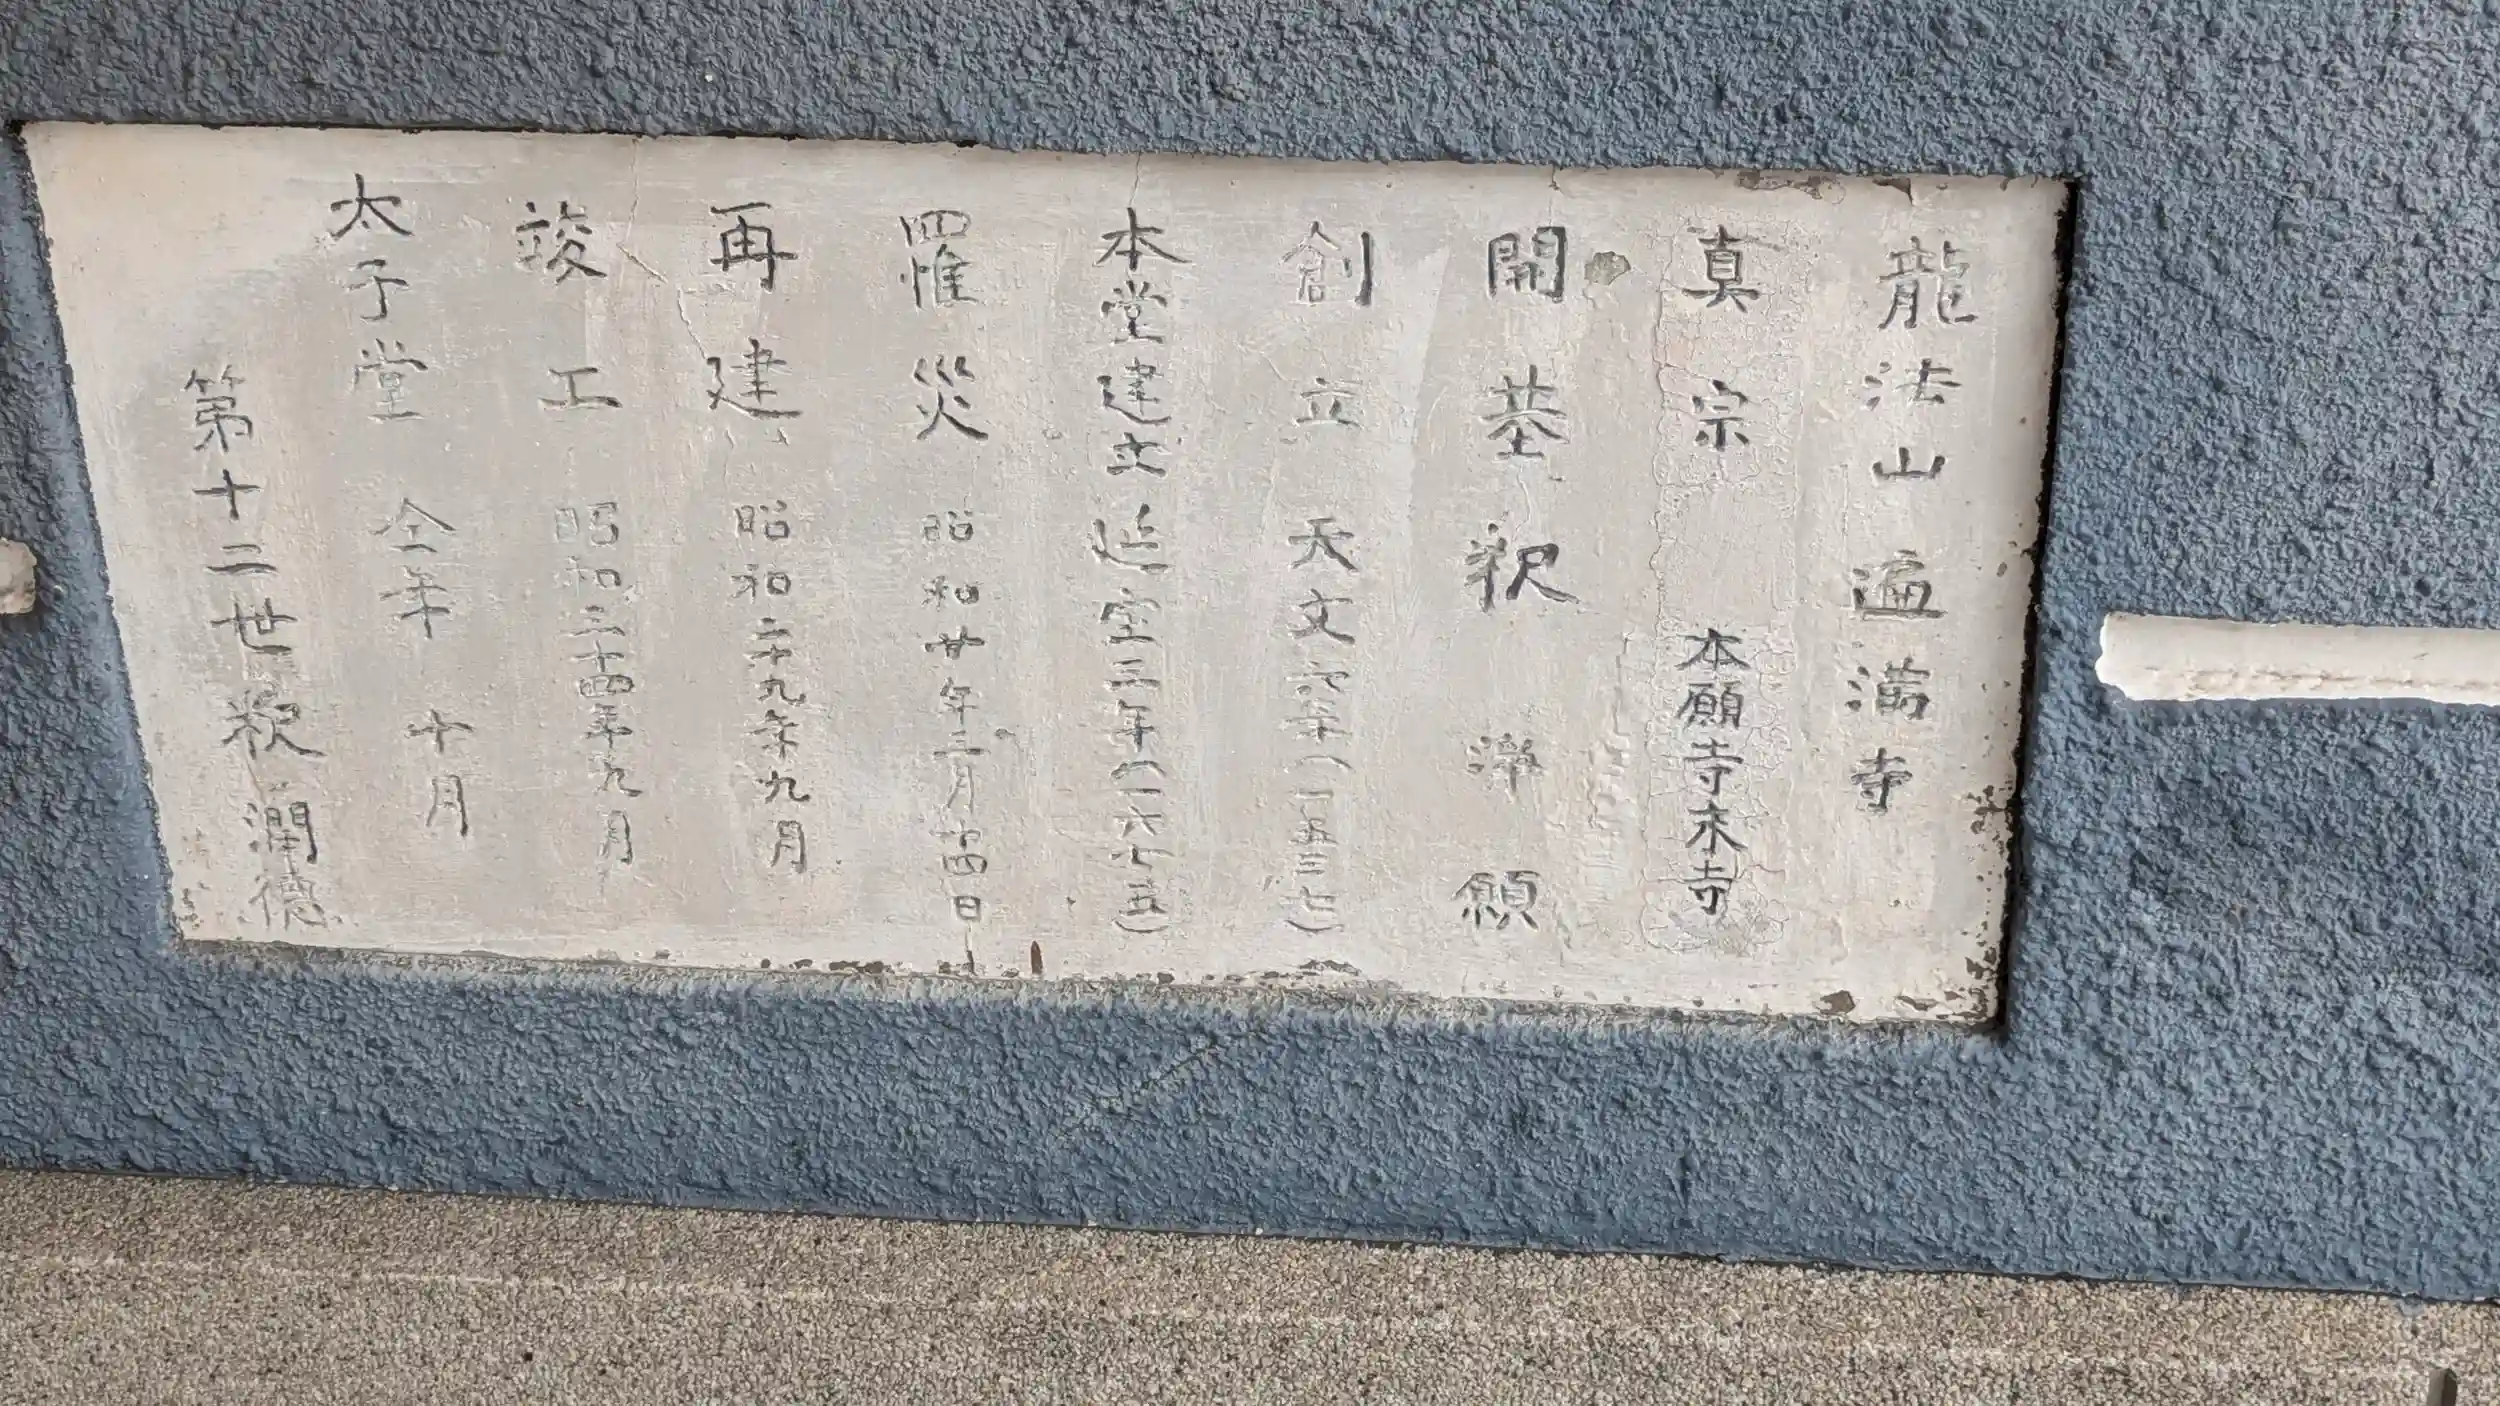 龍法山 遍満寺
真宗 本願寺末寺
開基 釈 浄願
創立 天文六年(一五三七)
本堂建立 延宝三年(一六七五)
罹災 昭和廿年三月十四日
再建 昭和二十九年九月
竣工 昭和三十四年九月
太子堂 仝年 十月
第十二世 釈 潤徳